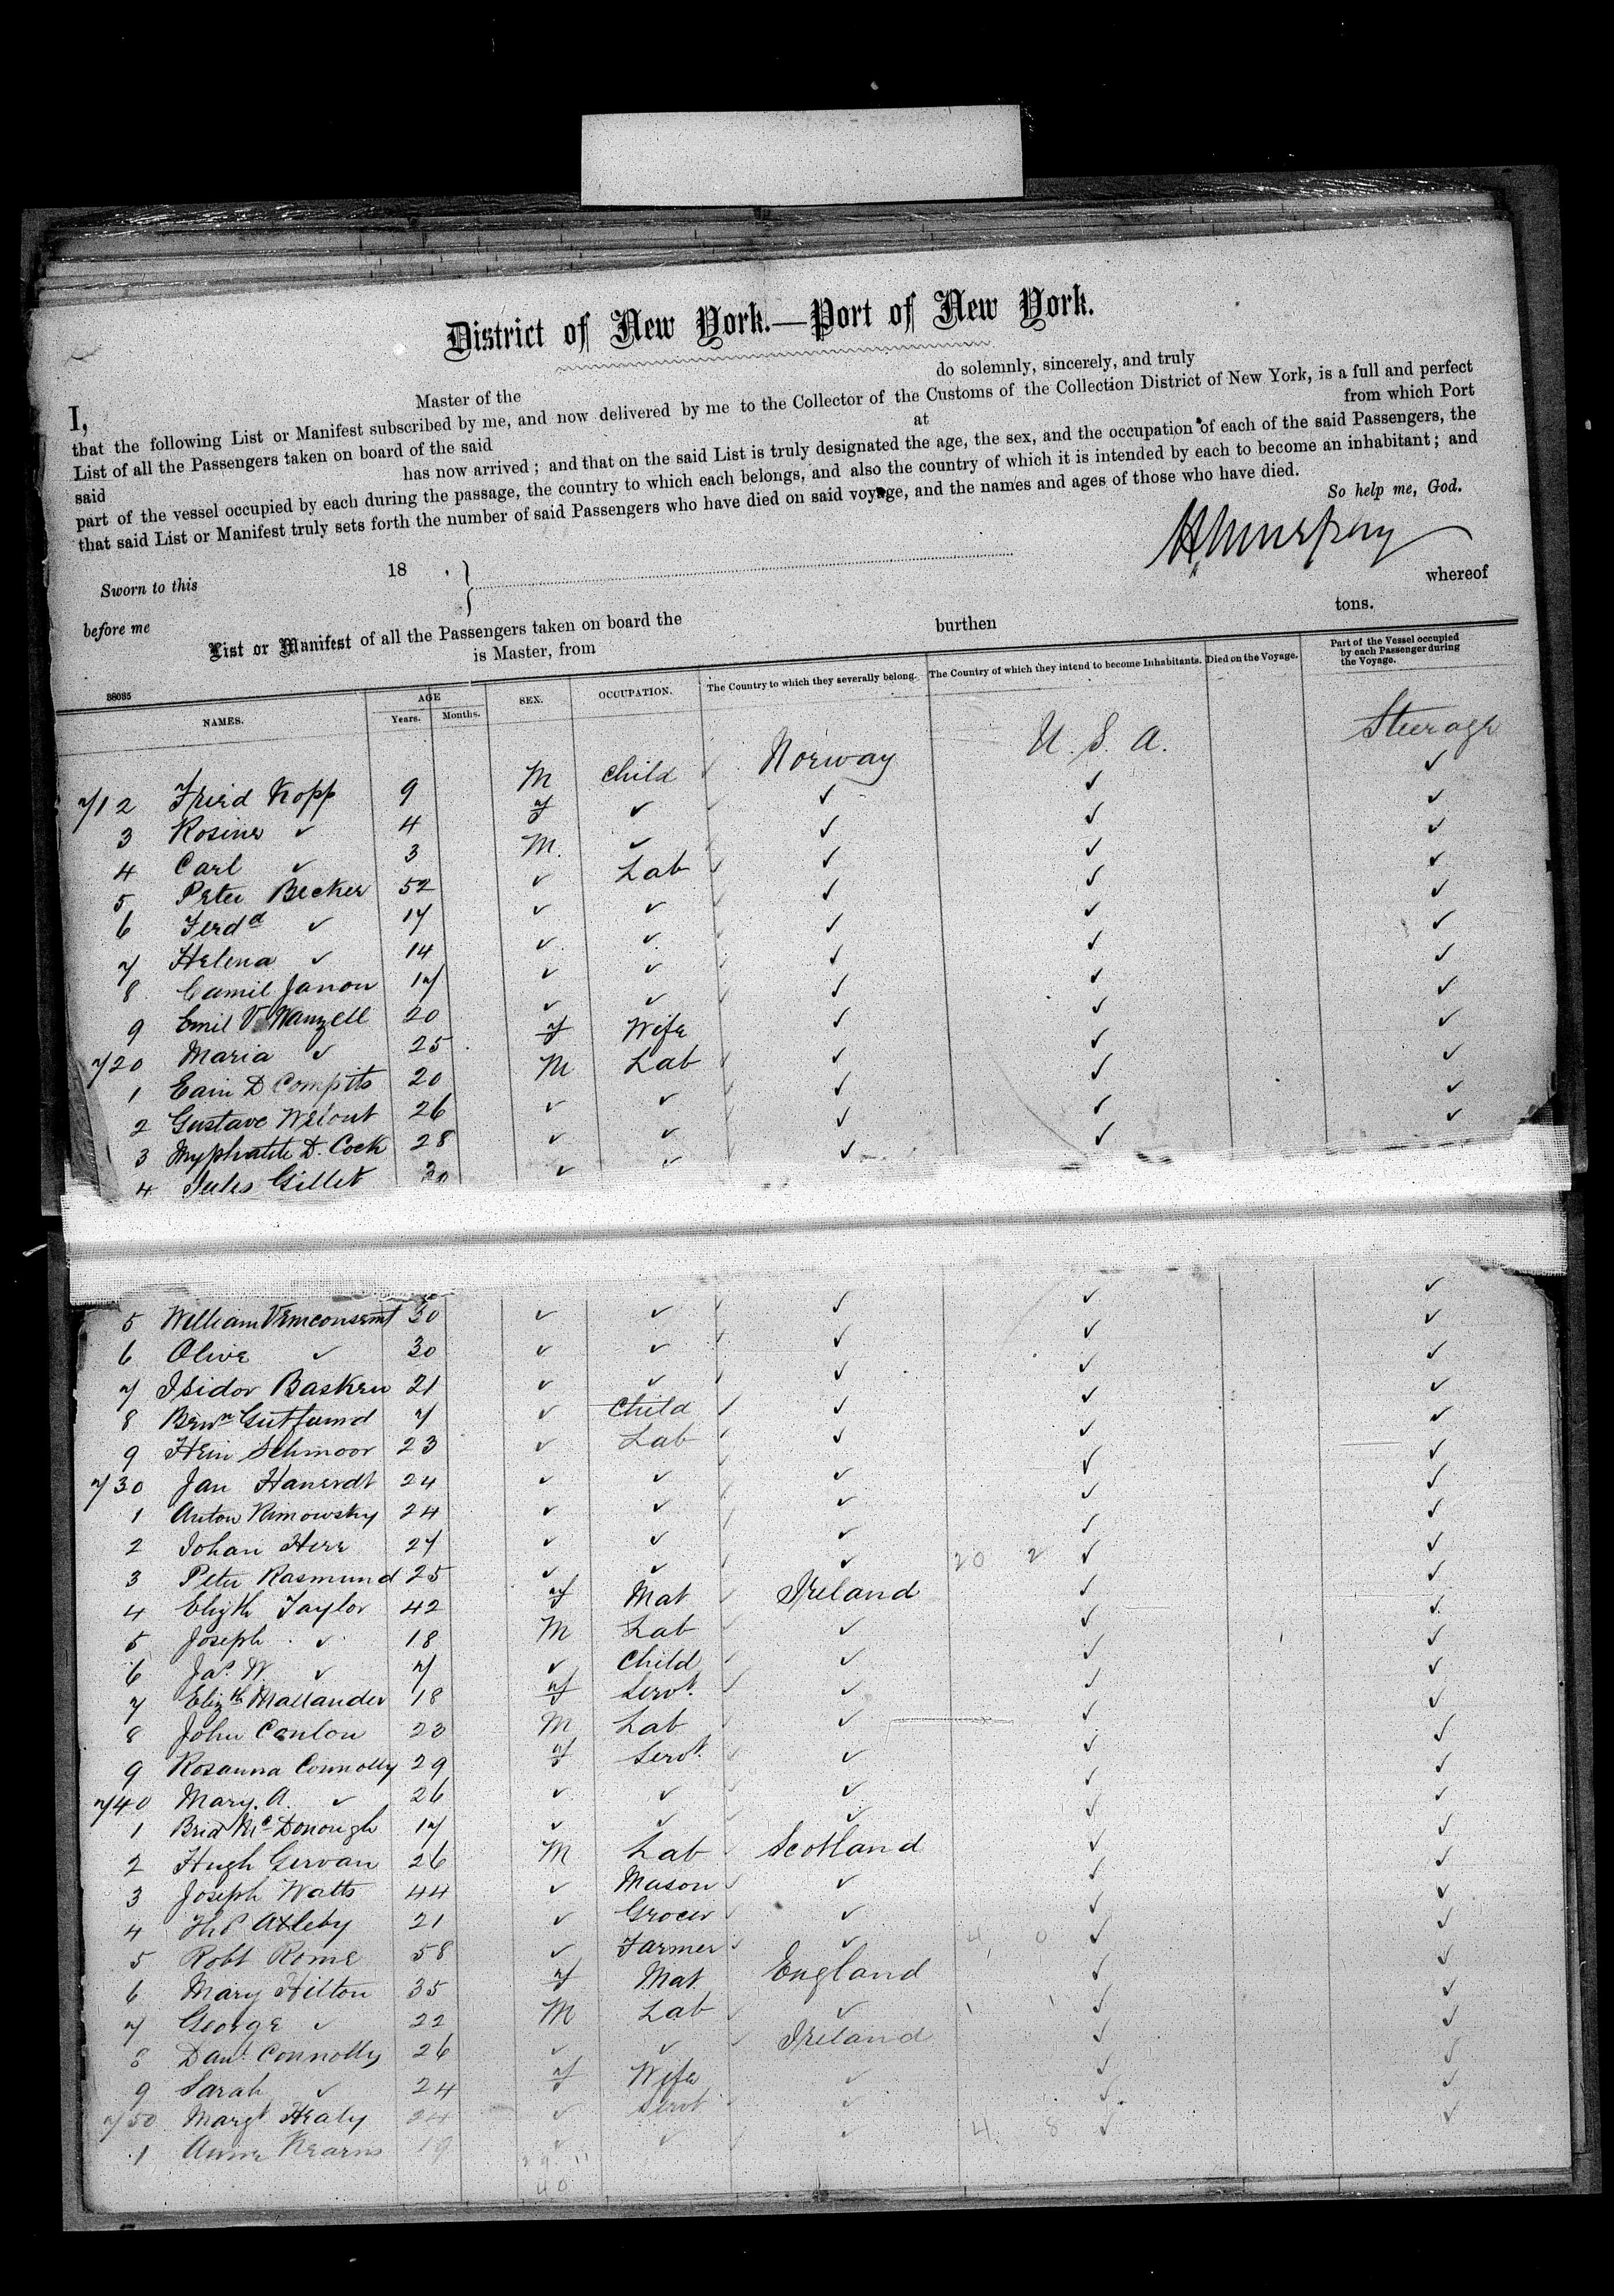 District of New York.—Port of New York.
I, Master of the do solemnly, sincerely, and truly
that the following List or Manifest subscribed by me, and now delivered by me to the Collector of the Customs of the Collection District of New York, is a full and perfect
List of all the Passengers taken on board of the said at from which Port
said has now arrived; and that on the said List is truly designated the age, the sex, and the occupation of each of the said Passengers, the
part of the vessel occupied by each during the passage, the country to which each belongs, and also the country of which it is intended by each to become an inhabitant; and
that said List or Manifest truly sets forth the number of said Passengers who have died on said voyage, and the names and ages of those who have died.
So help me, God.
Sworn to this 18
before me
List or Manifest of all the Passengers taken on board the burthen tons. whereof
is Master, from
38035
NAMES. AGE Years. Months. SEX. OCCUPATION. The Country to which they severally belong. The Country of which they intend to become Inhabitants. Died on the Voyage. Part of the Vessel occupied by each Passenger during the Voyage.
712 Fried Kopp 9 M Child ✓ Norway U. S. A. Steerage
3 Rosine ✓ 4 f ✓ ✓ ✓ ✓
4 Carl ✓ 3 M. ✓ ✓ ✓ ✓
5 Peter Becker 52 ✓ Lab ✓ ✓ ✓
6 Ferdd ✓ 17 ✓ ✓ ✓ ✓ ✓
7 Helena ✓ 14 ✓ ✓ ✓ ✓ ✓
8 Camil Janon 17 ✓ ✓ ✓ ✓ ✓
9 Emil V. Wanzell 20 ✓ ✓ ✓ ✓ ✓
720 Maria ✓ 25 f Wife ✓ ✓ ✓
1 D Compits 20 M Lab ✓ ✓ ✓
2 Gustave 26 ✓ ✓ ✓ ✓ ✓
3 D. Cock 28 ✓ ✓ ✓ ✓ ✓
4 Jules Gillet 30 ✓ ✓ ✓ ✓ ✓
5 William 30 ✓ ✓ ✓ ✓ ✓
6 Olive ✓ 30 ✓ ✓ ✓ ✓ ✓
7 Isidor 21 ✓ ✓ ✓ ✓ ✓
8 7 ✓ Child ✓ ✓ ✓
9 Hein Schmoor 23 ✓ Lab ✓ ✓ ✓
730 Jan 24 ✓ ✓ ✓ ✓ ✓
1 Anton 24 ✓ ✓ ✓ ✓ ✓
2 Johan Herr 27 ✓ ✓ ✓ ✓ ✓
3 Peter Rasmund 25 ✓ ✓ ✓ 20 2 ✓ ✓
4 Elizth Taylor 42 f Mat ✓ Ireland ✓ ✓
5 Joseph ✓ 18 M Lab ✓ ✓ ✓
6 Jas. W. ✓ 7 ✓ Child ✓ ✓ ✓
7 Elizth Mallander 18 f Servt. ✓ ✓ ✓
8 John Conlon 23 M Lab ✓ ✓ ✓
9 Rosanna Connolly 29 f Servt. ✓ ✓ ✓
740 Mary. A. ✓ 26 ✓ ✓ ✓ ✓ ✓
1 Brid McDonough 17 ✓ ✓ ✓ ✓ ✓
2 Hugh Girvan 26 M Lab Scotland ✓ ✓
3 Joseph Watts 44 ✓ Mason ✓ ✓ ✓
4 21 ✓ Grocer ✓ ✓ ✓
5 Robt Rome 58 ✓ Farmer ✓ 4 0 ✓ ✓
6 Mary Hilton 35 f Mat England ✓ ✓
7 George ✓ 22 M Lab ✓ 1 1 ✓ ✓
8 Danl. Connolly 26 ✓ ✓ Ireland ✓ ✓
9 Sarah ✓ 24 f Wife ✓ ✓ ✓
750 Margt Healy 24 ✓ Servt ✓ ✓ ✓
1 Anne Kearns 19 ✓ ✓ ✓ 4 8 ✓ ✓
29 11
40